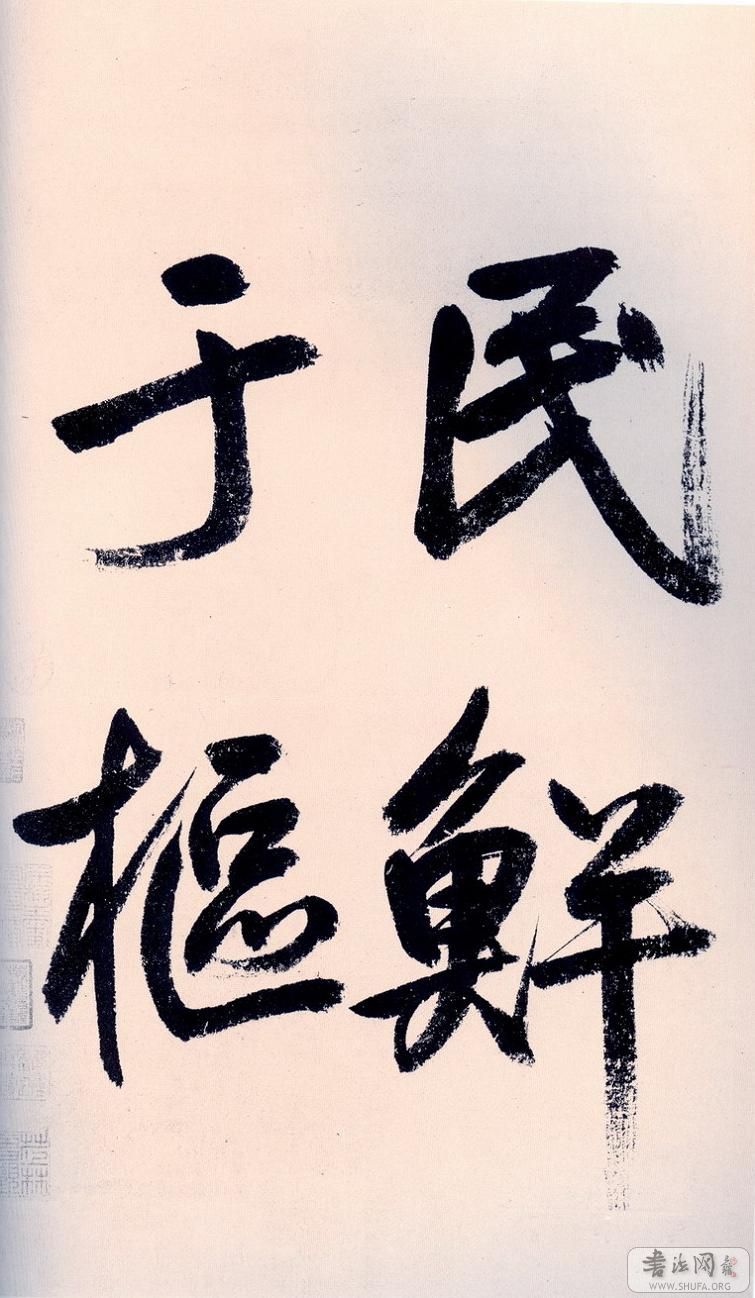 民鮮
于樞
書法网
WWW.SHUFA.ORG